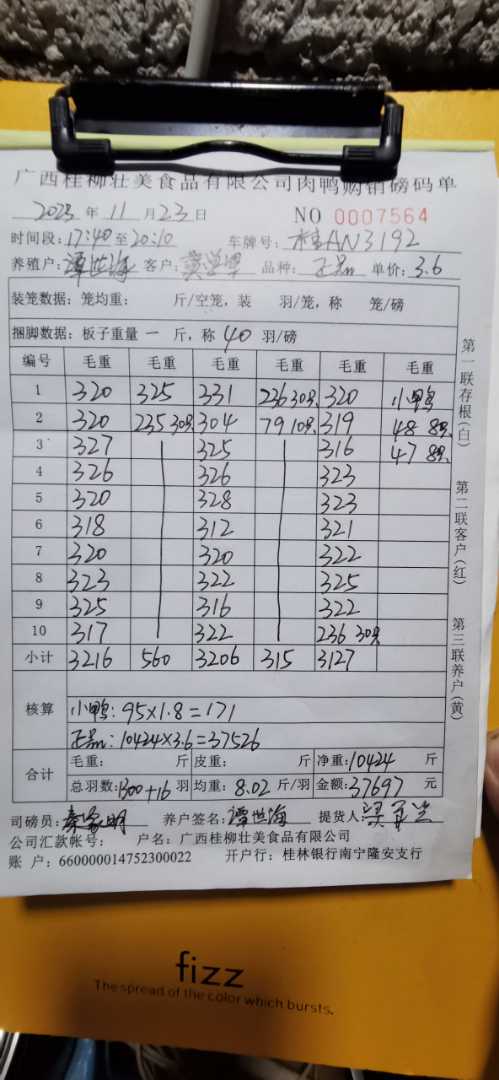 广西桂柳壮美食品有限公司肉鸭购销磅码单
2023 年 11 月 23 日 NO 0007564
时间段: 17:40 至 20:10 车牌号: 桂AN3192
养殖户: 谭世海 客户: 品种: 正品 单价: 3.6
装笼数据: 笼均重: 斤/空笼, 装 羽/笼, 称 笼/磅
捆脚数据: 板子重量 一 斤, 称 40 羽/磅
编号 毛重 毛重 毛重 毛重 毛重 毛重
1 320 325 331 236 30只 320 小鸭
2 320 235 30只 304 79 10只 319 48 8只
3 327 325 316 47 8只
4 326 326 323
5 320 328 323
6 318 312 321
7 320 320 322
8 323 322 325
9 325 316 322
10 317 322 236 30只
小计 3216 560 3206 315 3127
核算 小鸭: 95×1.8=171
正品: 10424×3.6=37526
合计 毛重: 斤 皮重: 斤 净重: 10424 斤
总羽数: 1300+16 羽 均重: 8.02 斤/羽 金额: 37697 元
司磅员: 养户签名: 谭世海 提货人:
公司汇款帐号: 户名: 广西桂柳壮美食品有限公司
账 户: 660000014752300022 开户行: 桂林银行南宁隆安支行
第一联存根(白)
第二联客户(红)
第三联养户(黄)
fizz
The spread of the color which bursts.